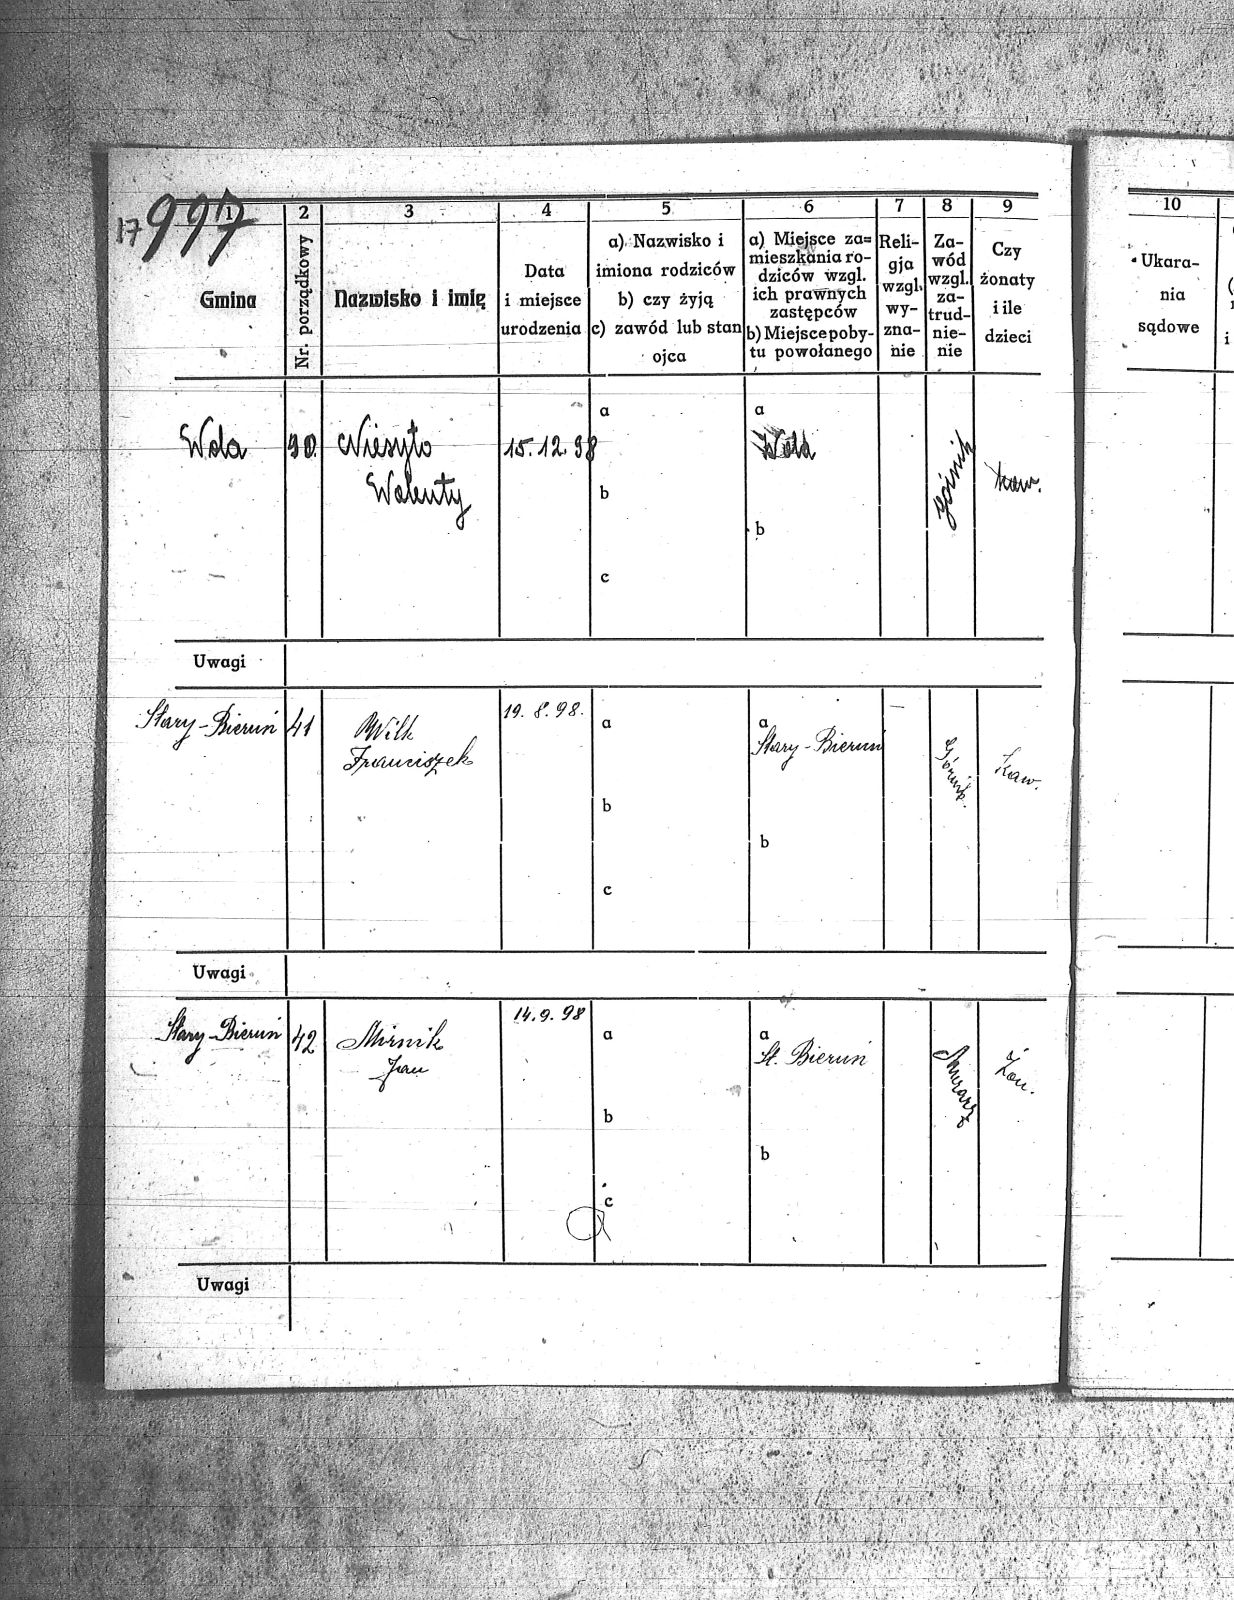 17 997
1 2 3 4 5 6 7 8 9
Gmina
Nr. porządkowy
Nazwisko i imię
Data
i miejsce
urodzenia
a) Nazwisko i
imiona rodziców
b) czy żyją
c) zawód lub stan
ojca
a) Miejsce za=
mieszkania ro-
dziców wzgl.
ich prawnych
zastępców
b) Miejsce poby-
tu powołanego
Reli-
gja
wzgl.
wy-
zna-
nie
Za-
wód
wzgl.
za-
trud-
nie-
nie
Czy
żonaty
i ile
dzieci
10
Ukara-
nia
sądowe
Wola
90.
Niesyto
Walenty
15.12.98
a
b
c
a
Wola
b
górnik
kaw.
Uwagi
Stary-Bieruń
41
Wilk
Franciszek
19.8.98.
a
b
c
a
Stary-Bieruń
b
Górnik.
Kaw.
Uwagi
Stary-Bieruń
42
Mirnik
Jan
14.9.98
a
b
c
a
St. Bieruń
b
Murarz
Żon.
Uwagi